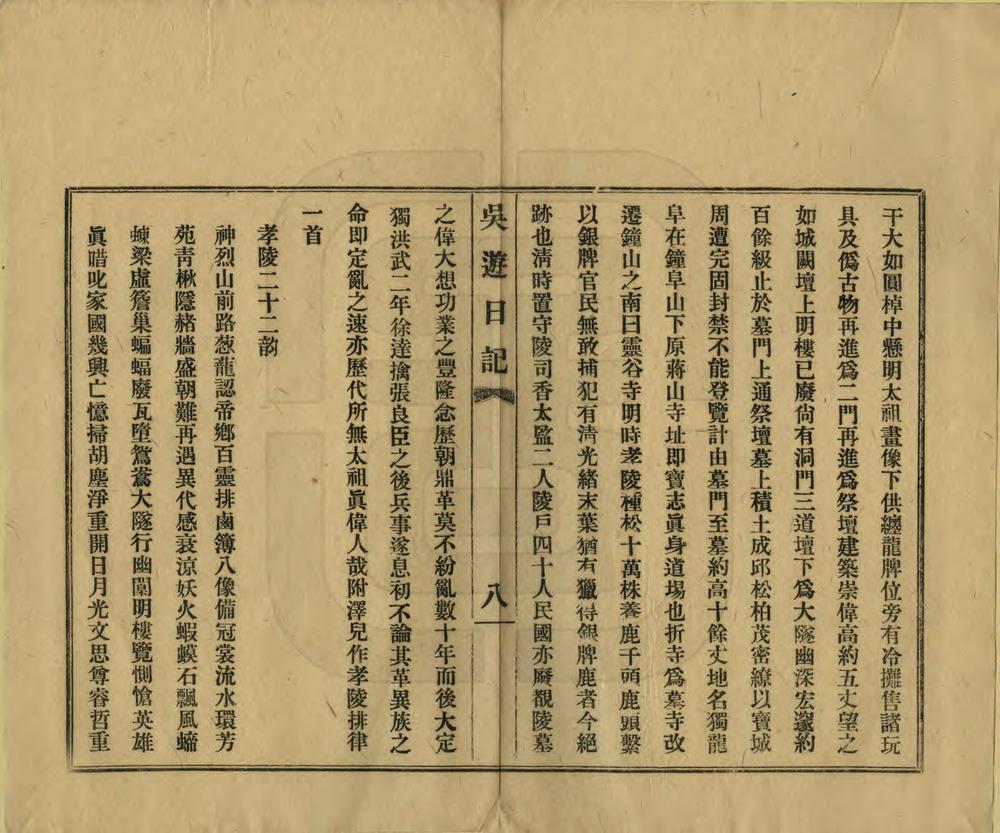 干大如圓棹中懸明太祖畫像下供纏龍牌位旁有冷攤售諸玩
具及僞古物再進爲二門再進爲祭壇建築崇偉高約五丈望之
如城闕壇上明樓已廢尙有洞門三道壇下爲大隧幽深宏邃約
百餘級止於墓門上通祭壇墓上積土成邱松柏茂密繚以寶城
周遭完固封禁不能登覽計由墓門至墓約高十餘丈地名獨龍
阜在鐘阜山下原蔣山寺址即寶志眞身道場也折寺爲墓寺改
遷鐘山之南曰靈谷寺明時孝陵種松十萬株養鹿千頭鹿頸繫
以銀牌官民無敢捕犯有淸光緖末葉猶有獵得銀牌鹿者今絕
跡也淸時置守陵司香太監二人陵戶四十人民國亦廢覩陵墓
吳遊日記 八
之偉大想功業之豐隆念歷朝鼎革莫不紛亂數十年而後大定
獨洪武二年徐達擒張良臣之後兵事遂息初不論其革異族之
命即定亂之速亦歷代所無太祖眞偉人哉附澤兒作孝陵排律
一首
孝陵二十二韵
神烈山前路葱蘢認帝鄕百靈排鹵簿八像備冠裳流水環芳
苑靑楸隱赭牆盛朝難再遇異代感衰涼妖火蝦蟆石飄風螮
蝀梁虛簷巢蝙蝠廢瓦墮鴛鴦大隧行幽闃明樓覽惻愴英雄
眞唶叱家國幾興亡憶掃胡塵淨重開日月光文思尊睿哲重